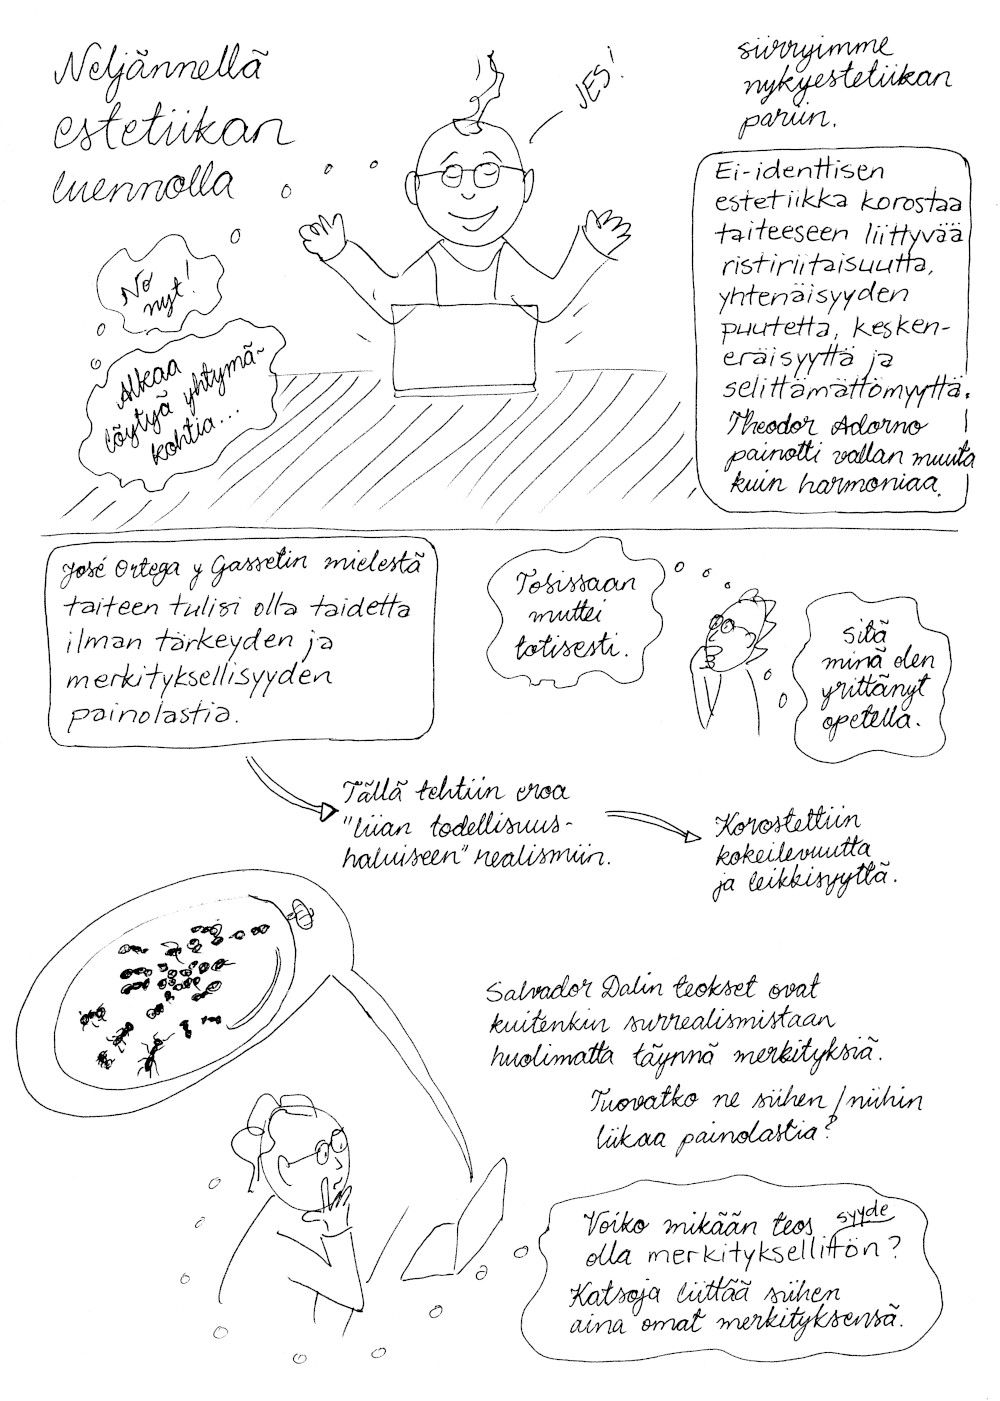 Neljännellä
estetiikan
luennolla
JES!
siirryimme
nykyestetiikan
pariin.
No
nyt!
Alkaa
löytyä yhtymä-
kohtia...
Ei-identtisen
estetiikka korostaa
taiteeseen liittyvää
ristiriitaisuutta,
yhtenäisyyden
puutetta, kesken-
eräisyyttä ja
selittämättömyyttä.
Theodor Adorno
painotti vallan muuta
kuin harmoniaa.
José Ortega y Gassetin mielestä
taiteen tulisi olla taidetta
ilman tärkeyden ja
merkityksellisyyden
painolastia.
Tosissaan
muttei
totisesti.
Sitä
minä olen
yrittänyt
opetella.
Tällä tehtiin eroa
"liian todellisuus-
haluiseen" realismiin.
Korostettiin
kokeilevuutta
ja leikkisyyttä.
Salvador Dalin teokset ovat
kuitenkin surrealismistaan
huolimatta täynnä merkityksiä.
Tuovatko ne siihen/niihin
liikaa painolastia?
Voiko mikään teos syyde
olla merkityksellitön?
Katsoja liittää siihen
aina omat merkityksensä.